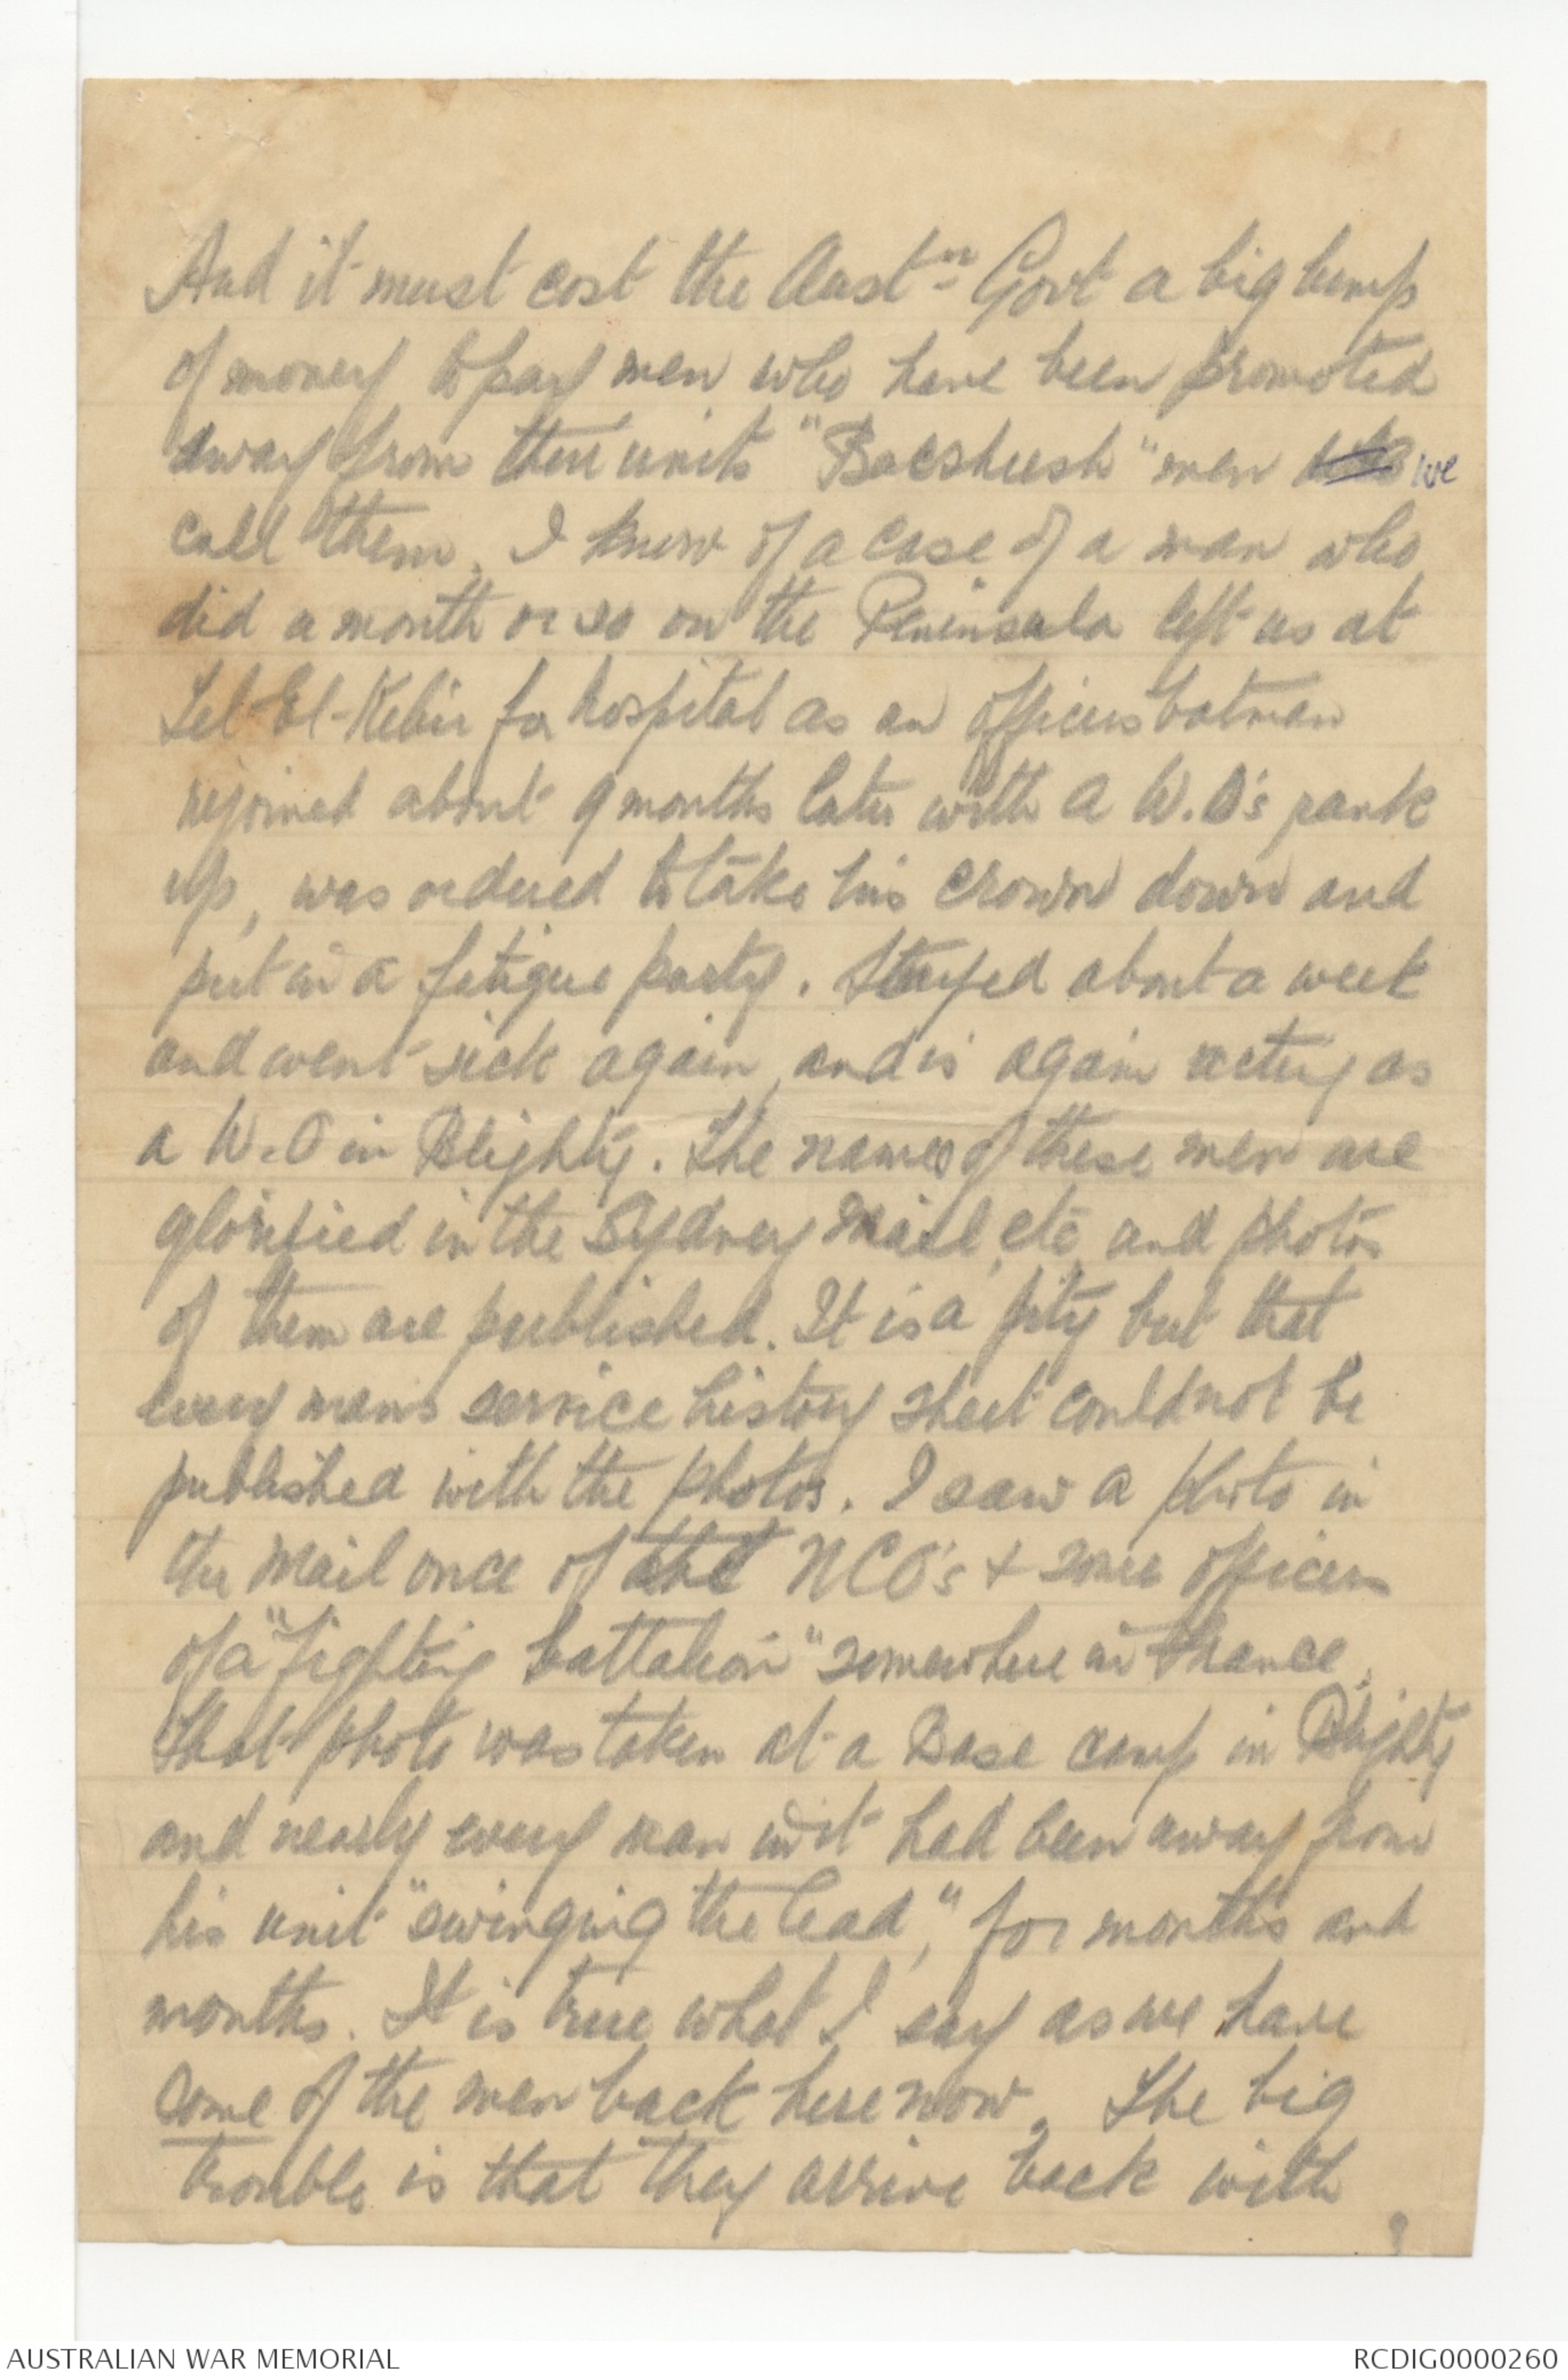 And it must cost the Austn Govt a big lump
of money to pay men who have been promoted
away from their units "Bacshush" men we
call them. I know of a case of a man who
did a month or so on the Peninsula left us at
Tel-El-Kebir for hospital as an officers batman
rejoined about 9 months later with a W.O's rank
up, was ordered to take his crown down and
put in a fatigue party. Stayed about a week
and went sick again, and is again acting as
a W.O in Blighty. The names of these men are
glorified in the Sydney Mail, etc, and photos
of them are published. It is a pity but that
every mans service history sheet could not be
published with the photos. I saw a photo in
the Mail once of the NCO's + some officers
of a "fighting battalion" somewhere in France.
That photo was taken at a Base camp in Blighty
and nearly every man in it had been away from
his unit "swinging the lead," for months and
months. It is true what I say as we have
some of the men back here now. The big
trouble is that they arrive back with
AUSTRALIAN WAR MEMORIAL
RCDIG0000260